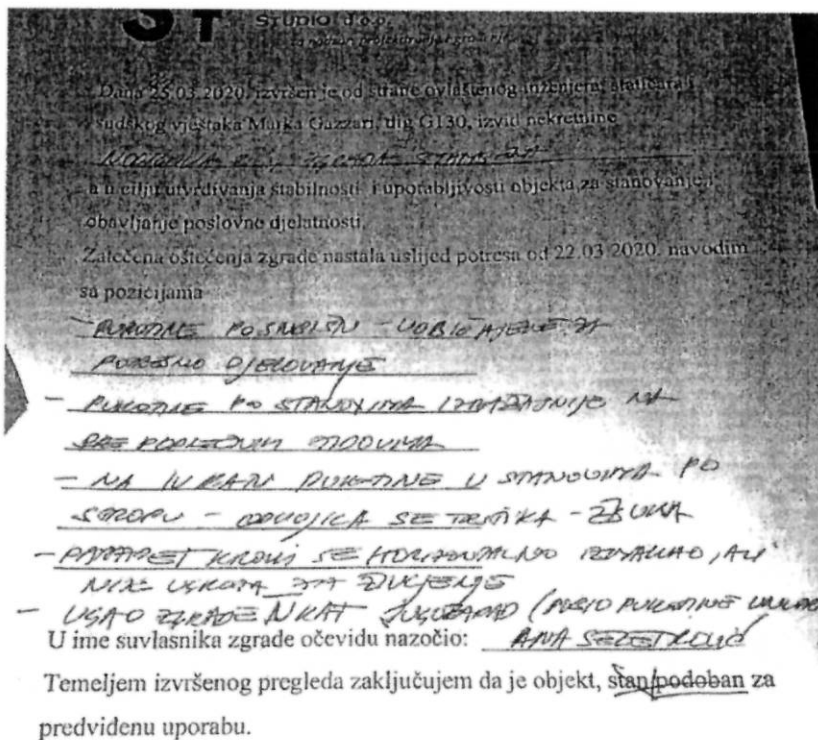 ST STUDIO d.o.o.
za nadzor, projektiranje i građenje
Dana 25.03.2020. izvršen je od strane ovlaštenog inženjera, statičara i
sudskog vještaka Marka Gazzari, dig G130, izvid nekretnine
a u cilju utvrđivanja stabilnosti i uporabljivosti objekta za stanovanje i
obavljanje poslovne djelatnosti.
Zatečena oštećenja zgrade nastala uslijed potresa od 22.03.2020. navodim
sa pozicijama
- PUKOTINE PO STUBIŠTU - UOBIČAJENE ZA
POTRESNO DJELOVANJE
- PUKOTINE PO STANOVIMA IZRAŽAJNIJE NA
PREGRADNIM ZIDOVIMA
- NA IV KATU PUKOTINE U STANOVIMA PO
STROPU - ODVOJILA SE TRSTIKA - ŽBUKA
- PARAPET KROVA SE HORIZONTALNO, ALI
NIJE UGROZA ZA ŽIVLJENJE
- UGAO ZGRADE KAT JUGOZAPAD (PUKOTINE
U ime suvlasnika zgrade očevidu nazočio: ANA
Temeljem izvršenog pregleda zaključujem da je objekt, stan/podoban za
predviđenu uporabu.